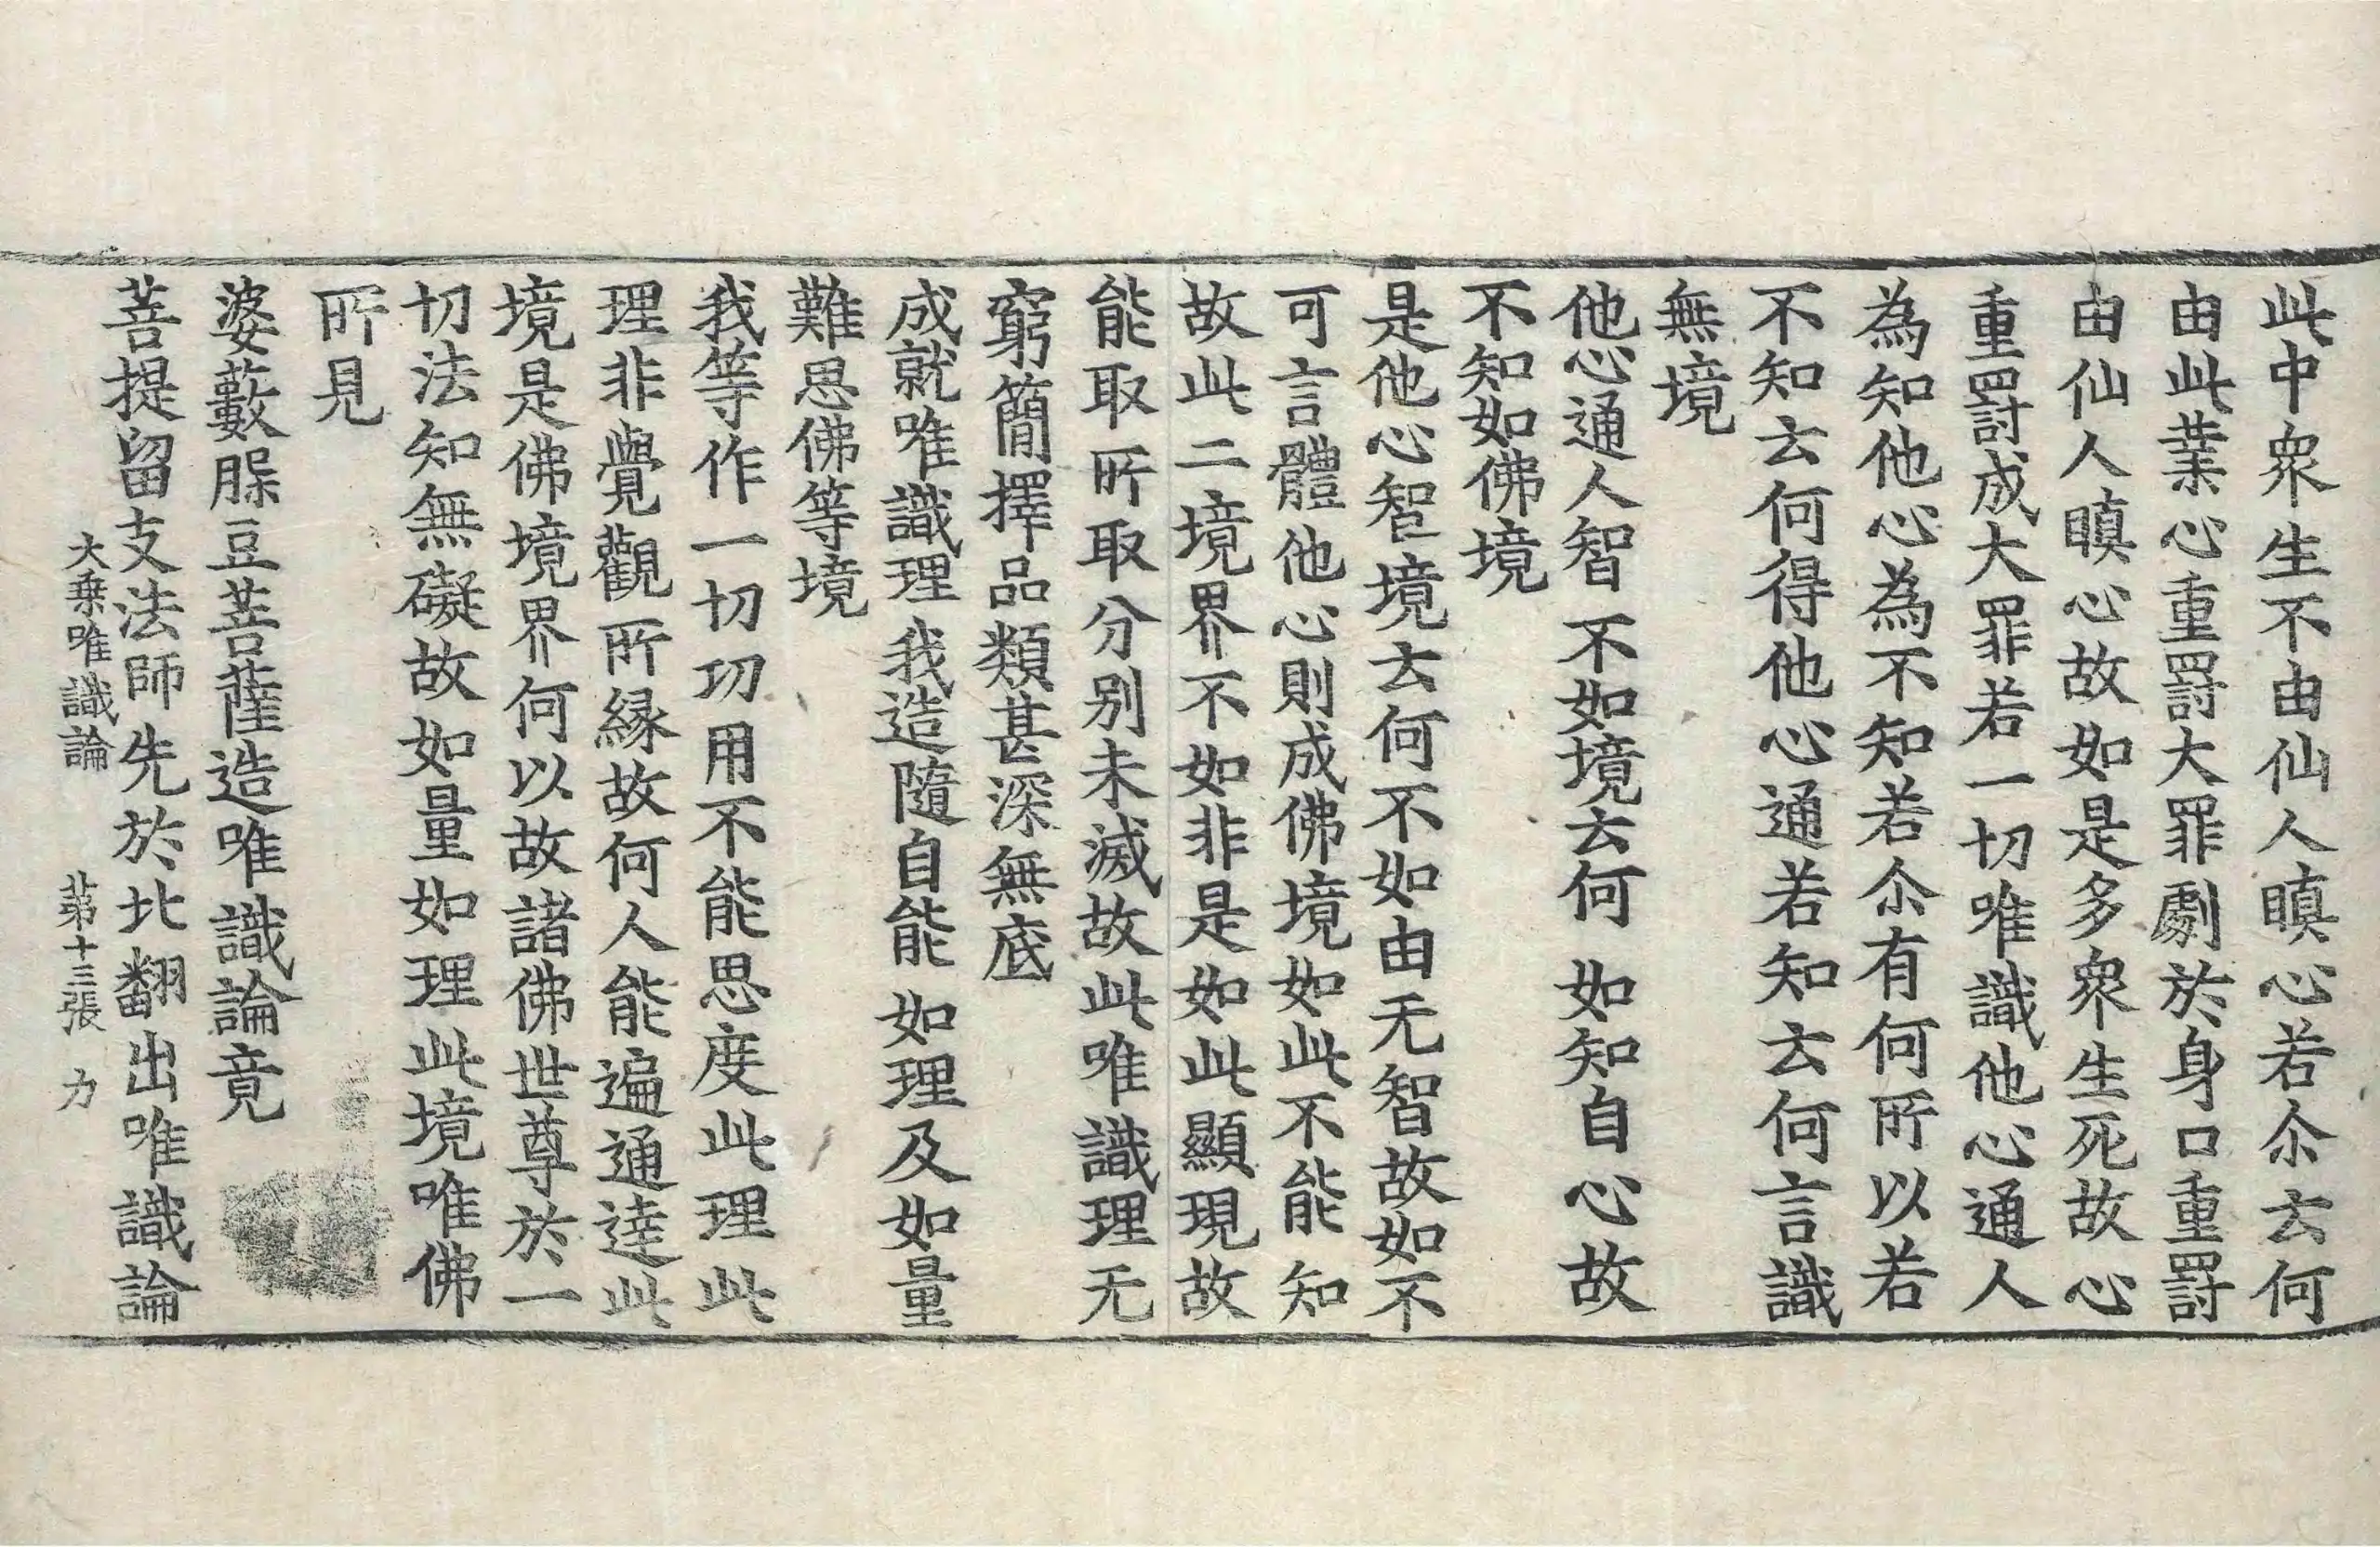 此中衆生不由仙人瞋心若尒云何
由此業心重罰大罪劇於身口重罰
由仙人瞋心故如是多衆生死故心
重罰成大罪若一切唯識他心通人
為知他心為不知若尒有何所以若
不知云何得他心通若知云何言識
無境
他心通人智 不如境云何 如知自心故
不知如佛境
是他心智境云何不如由无智故如不
可言體他心則成佛境如此不能知
故此二境界不如非是如此顯現故
能取所取分別未滅故此唯識理无
窮簡擇品類甚深無底
成就唯識理 我造隨自能 如理及如量
難思佛等境
我等作一切功用不能思度此理此
理非覺觀所縁故何人能遍通達此
境是佛境界何以故諸佛世尊於一
切法知無礙故如量如理此境唯佛
所見
婆藪䐆豆菩薩造唯識論竟
菩提留支法師先於北翻出唯識論
大乗唯識論 苐十三張 力